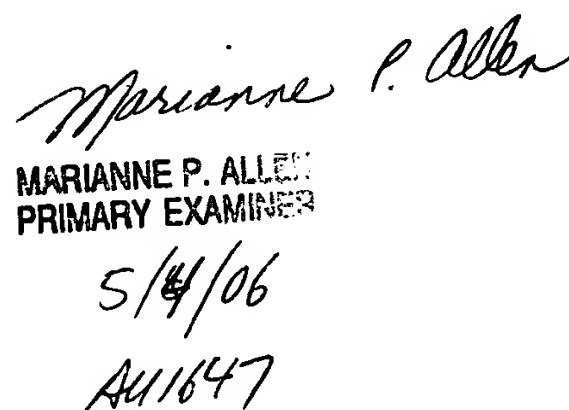 Marianne P. Allen
MARIANNE P. ALLEN
PRIMARY EXAMINER
5/4/06
AU1647